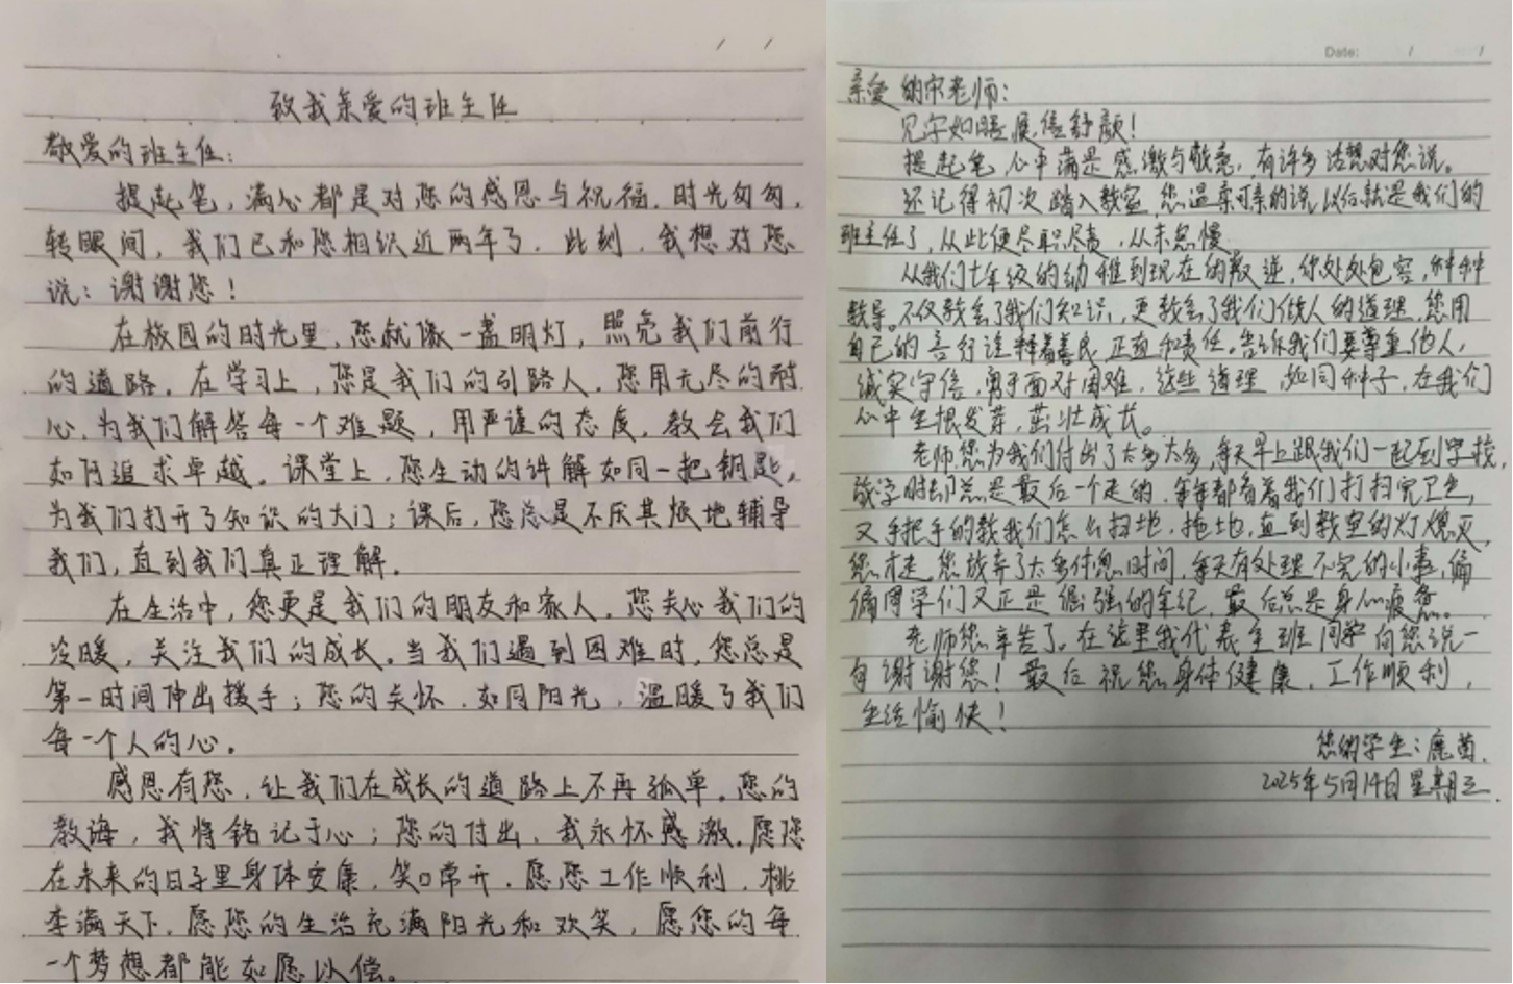 致我亲爱的班主任
敬爱的班主任：
提起笔，满心都是对您的感恩与祝福。时光匆匆，
转眼间，我们已和您相识近两年了。此刻，我想对您
说：谢谢您！
在校园的时光里，您就像一盏明灯，照亮我们前行
的道路。在学习上，您是我们的引路人。您用无尽的耐
心，为我们解答每一个难题，用严谨的态度，教会我们
如何追求卓越。课堂上，您生动的讲解如同一把钥匙，
为我们打开了知识的大门；课后，您总是不厌其烦地辅导
我们，直到我们真正理解。
在生活中，您更是我们的朋友和家人。您关心我们的
冷暖，关注我们的成长。当我们遇到困难时，您总是
第一时间伸出援手；您的关怀，如同阳光，温暖了我们
每一个人的心。
感恩有您，让我们在成长的道路上不再孤单。您的
教诲，我将铭记于心；您的付出，我永怀感激。愿您
在未来的日子里身体安康，笑口常开。愿您工作顺利，桃
李满天下，愿您的生活充满阳光和欢笑，愿您的每
一个梦想都能如愿以偿。
Date: / /
亲爱的宋老师：
见字如晤，展信舒颜！
提起笔，心中满是感激与敬意，有许多话想对您说。
还记得初次踏入教室，您温柔可亲的说，以后就是我们的
班主任了，从此便尽职尽责，从未怠慢。
从我们七年级的幼稚到现在的叛逆，你处处包容，种种
教导。不仅教会了我们知识，更教会了我们做人的道理。您用
自己的言行诠释着善良，正直和责任。告诉我们要尊重他人，
诚实守信，勇于面对困难，这些道理，如同种子，在我们
心中生根发芽，茁壮成长。
老师，您为我们付出了太多太多，每天早上跟我们一起到学校，
放学时却总是最后一个走的，每每都看着我们打扫完卫生，
又手把手的教我们怎么扫地，拖地，直到教室的灯熄灭，
您才走，您放弃了太多休息时间，每天有处理不完的小事，偏
偏同学们又正是倔强的年纪，最后总是身心疲惫。
老师您辛苦了。在这里我代表全班同学向您说一
句谢谢您！最后祝您身体健康，工作顺利，
生活愉快！
您的学生：鹿茵
2025年5月14日星期三